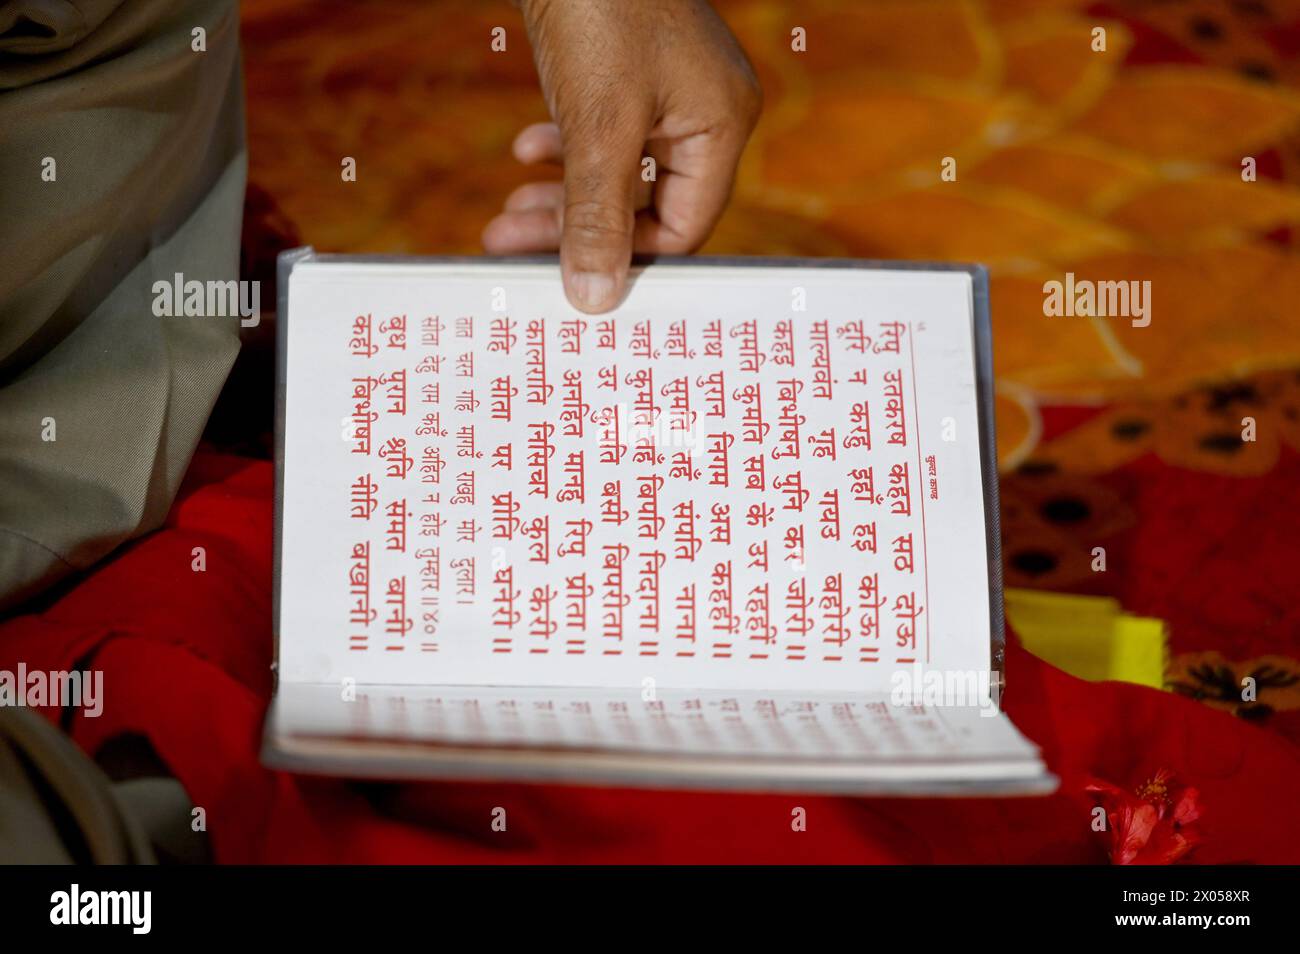 सुन्दर काण्ड
रिपु उतकरष कहत सठ दोऊ।
दूरि न करहु इहाँ हइ कोऊ॥
माल्यवंत गृह गयउ बहोरी।
कहइ बिभीषनु पुनि कर जोरी॥
सुमति कुमति सब कें उर रहहीं।
नाथ पुरान निगम अस कहहीं॥
जहाँ सुमति तहँ संपति नाना।
जहाँ कुमति तहँ बिपति निदाना॥
तव उर कुमति बसी बिपरीता।
हित अनहित मानहु रिपु प्रीता॥
कालराति निसिचर कुल केरी।
तेहि सीता पर प्रीति घनेरी॥
तात चरन गहि मागउँ राखहु मोर दुलार।
सीता देहु राम कहुँ अहित न होइ तुम्हार॥४०॥
बुध पुरान श्रुति संमत बानी।
कही बिभीषन नीति बखानी॥
alamy
Image ID: 2X058XR
www.alamy.com